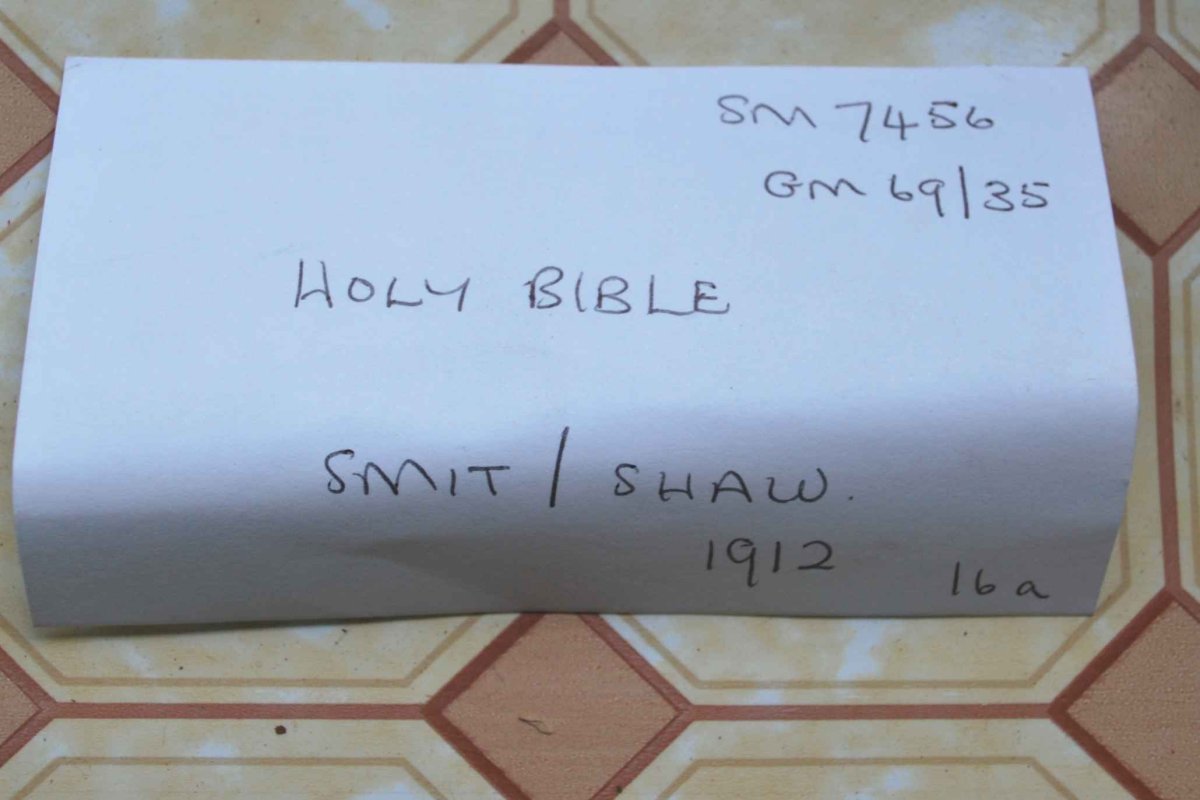 SM 7456
GM 69/35
HOLY BIBLE
SMIT / SHAW.
1912
16a